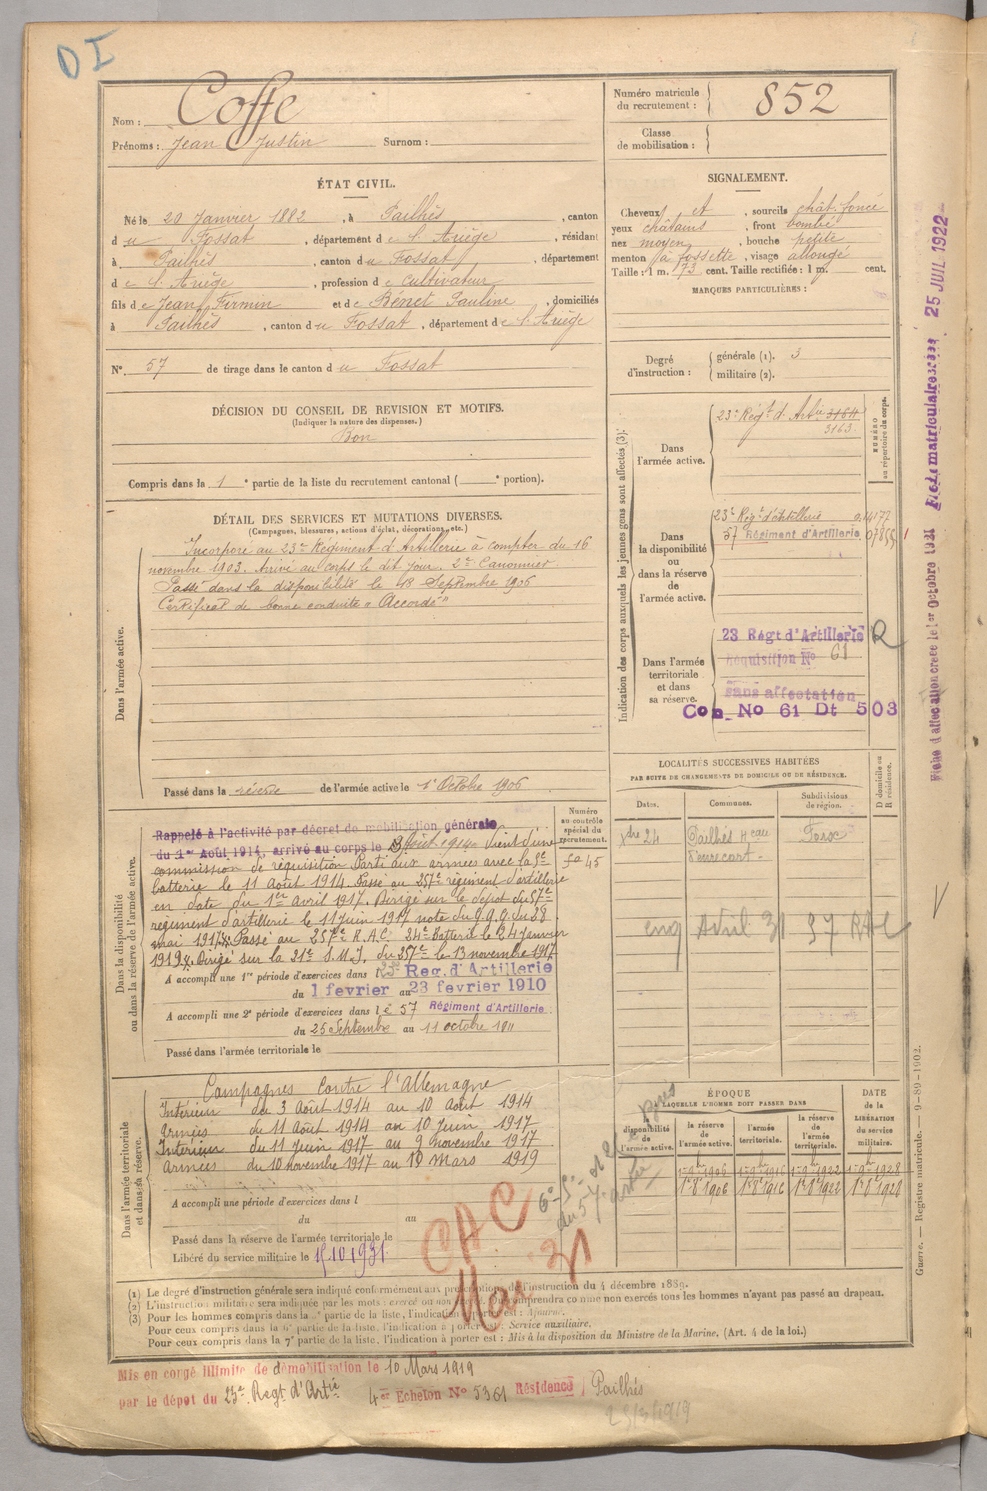 DI
Nom : Coffe
Prénoms : Jean Justin Surnom :
Numéro matricule du recrutement : 852
Classe de mobilisation :
ÉTAT CIVIL.
Né le 20 Janvier 1882, à Pailhès, canton
du Fossat, département de l'Ariège, résidant
à Pailhès, canton du Fossat, département
de l'Ariège, profession de cultivateur
fils de Jean Firmin et de Bénet Pauline, domiciliés
à Pailhès, canton du Fossat, département de l'Ariège
N° 57 de tirage dans le canton du Fossat
SIGNALEMENT.
Cheveux et, sourcils chât. foncé
yeux châtains, front bombé
nez moyen, bouche petite
menton à fossette, visage allongé
Taille : 1 m. 73 cent. Taille rectifiée : 1 m. cent.
MARQUES PARTICULIÈRES :
Degré d'instruction : générale (1). 3
militaire (2).
DÉCISION DU CONSEIL DE REVISION ET MOTIFS.
(Indiquer la nature des dispenses.)
Bon
Compris dans la 1e partie de la liste du recrutement cantonal ( e portion).
DÉTAIL DES SERVICES ET MUTATIONS DIVERSES.
(Campagnes, blessures, actions d'éclat, décorations, etc.)
Dans l'armée active.
Incorporé au 23e Régiment d'Artillerie à compter du 16
novembre 1903. Arrivé au corps le dit jour. 2e Canonnier
Passé dans la disponibilité le 18 Septembre 1906
Certificat de bonne conduite "Accordé"
Passé dans la réserve de l'armée active le 1er Octobre 1906
Indication des corps auxquels les jeunes gens sont affectés (3) :
NUMÉRO au répertoire du corps.
Dans l'armée active.
23e Régt d'Artie 3164
3163
Dans la disponibilité ou dans la réserve de l'armée active.
23e Régt d'Artillerie
57 Régiment d'Artillerie
Dans l'armée territoriale et dans sa réserve.
23 Régt d'Artillerie R
Réquisition No 61
sans affectation
Con. No 61 Dt 503
LOCALITÉS SUCCESSIVES HABITÉES
PAR SUITE DE CHANGEMENTS DE DOMICILE OU DE RÉSIDENCE.
Dates. Communes. Subdivisions de région. D domicile ou R résidence.
Xbre 24 Pailhès Foix
enq Avril 31 57 RAC
Dans la disponibilité ou dans la réserve de l'armée active.
Numéro au contrôle spécial du recrutement.
Rappelé à l'activité par décret de mobilisation générale
du 1er Août 1914, arrivé au corps le 3 Août 1914 Vient d'une
commission de réquisition Parti aux armées avec la 5e
batterie le 11 Août 1914. Passé au 257e régiment d'artillerie
en date du 1er avril 1917. Dirigé sur le dépôt du 57e
régiment d'artillerie le 11 Juin 1917 note du G.Q.G. du 28
mai 1917. Passé au 257e R.A.C. 24e Batterie le 24 Janvier
1919. Dirigé sur la 21e S.M.I. du 257e le 13 novembre 1917
A accompli une 1re période d'exercices dans le 23e Reg. d'Artillerie
du 1 fevrier au 23 fevrier 1910
A accompli une 2e période d'exercices dans le 57 Régiment d'Artillerie
du 25 Septembre au 11 octobre 1911
Passé dans l'armée territoriale le
Dans l'armée territoriale et dans sa réserve.
Campagnes Contre l'Allemagne
Intérieur du 3 Août 1914 au 10 Août 1914
Armées du 11 Août 1914 au 10 Juin 1917
Intérieur du 11 Juin 1917 au 9 novembre 1917
Armées du 10 novembre 1917 au 10 Mars 1919
A accompli une période d'exercices dans l
du au
Passé dans la réserve de l'armée territoriale le
Libéré du service militaire le 15.10.1931
CAC
Mai 31
ÉPOQUE
À LAQUELLE L'HOMME DOIT PASSER DANS
la disponibilité de l'armée active. la réserve de l'armée active. l'armée territoriale. la réserve de l'armée territoriale.
DATE de la LIBÉRATION du service militaire.
1er 9bre 1906 1er 9bre 1916 1er 9bre 1922 1er 9bre 1928
1er 8bre 1906 1er 8bre 1916 1er 8bre 1922 1er 8bre 1928
(1) Le degré d'instruction générale sera indiqué conformément aux prescriptions de l'instruction du 4 décembre 1889.
(2) L'instruction militaire sera indiquée par les mots : exercé ou non exercé. On comprendra comme non exercés tous les hommes n'ayant pas passé au drapeau.
(3) Pour les hommes compris dans la partie de la liste, l'indication à porter est : Ajourné.
Pour ceux compris dans la 6e partie de la liste, l'indication à porter est : Service auxiliaire.
Pour ceux compris dans la 7e partie de la liste, l'indication à porter est : Mis à la disposition du Ministre de la Marine. (Art. 4 de la loi.)
Mis en congé illimité de démobilisation le 10 Mars 1919
par le dépot du 23e Regt d'Artie 4er Echelon No 5361 Résidence Pailhès
25/3/1919
Fiche d'affectation créée le 1er Octobre 1931
Fiche matriculaire créée 25 JUIL 1922
Guerre. — Registre matricule. — 9-89-1902.